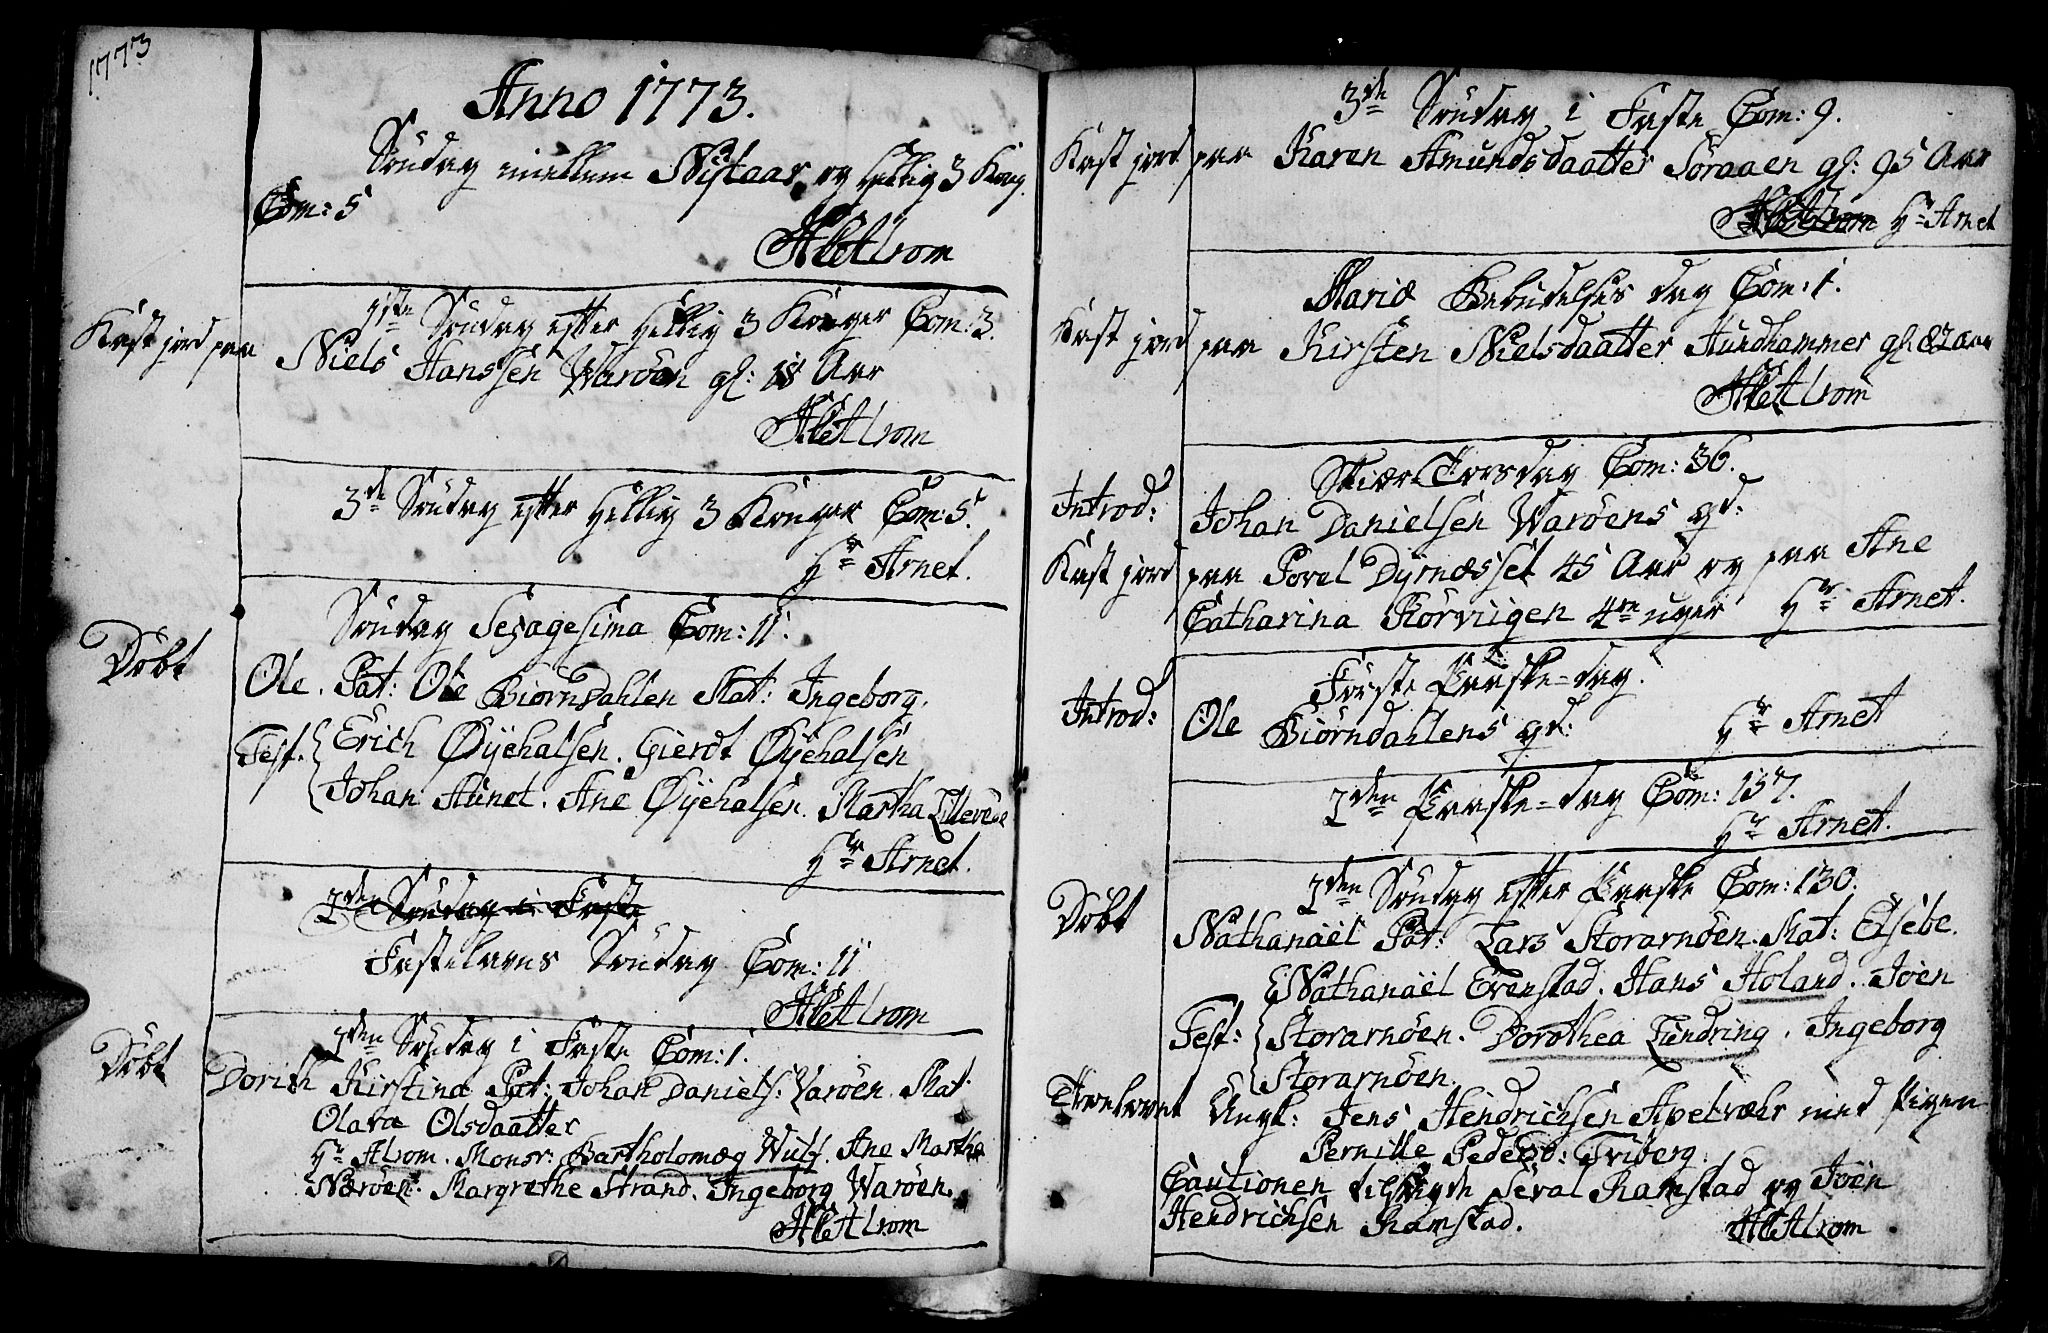 1773
Anno 1773.
Søndag mellem Nÿtaar og Hellig 3 Kong.
Com: 5
HPetLrom
1ste Søndag efter Hellig 3 Konger Com: 3.
Kast jord paa Niels Hanssen Warøen gl: 18 Aar
3de Søndag efter Hellig 3 Konger Com: 5.
Hr Arnet.
Søndag Sexagesima Com: 11.
Døbt
Ole. Pat: Ole Biørndahlen Mat: Ingeborg.
Test. Erich Øÿehalsen. Gierdt Øÿehalsen
Johan Aunet. Ane Øÿehalsen. Martha Lillevære
Hr Arnet.
2den Søndag i Faste
Fastelavns Søndag Com: 11
2den Søndag i Faste Com: 1.
Døbt
Dorith Kirstina Pat: Johan Daniels: Varøen. Mat:
Olava Olsdaatter
Hr Alrom. Monsr: Bartholomæg Wulf. Ane Martha
Nærøen. Margrethe Strand. Ingeborg Warøen.
3de Søndag i Faste Com: 9.
Kast jord paa Karen Amundsdaatter Søraaen gl: 95 Aar
Hr Arnet
Mariæ Bebudelses dag Com: 1.
Kast jord paa Kirsten Nielsdaatter Aundhammer gl: 82 aar
Skiær-Torsdag Com: 36.
Introd: Johan Danielsen Warøens qd:
Kast jord paa Povel Dyrnæsset 45 Aar og paa Ane
Catharina Rørviigen 4re uger Hr Arnet.
Første Paaske-dag.
Introd: Ole Biørndahlens qd: Hr Arnet
2den Paaske-dag Com: 157.
Hr Arnet.
2den Søndag efter Paaske Com: 130.
Døbt
Nathanaël Pat: Lars Storarnøen. Mat: Elsebe.
Nathanaël Evenstad. Hans Holand. Joen
Test: Storarnøen. Dorothea Lundring. Ingeborg
Storarnøen.
Trolovet Ungk: Jens Hendrichsen Apelvæhr med Pigen
Pernille Pedersd: Triberg.
Cautionen tilsagde Seval Ramstad og Joen
Hendrichsen Ramstad.